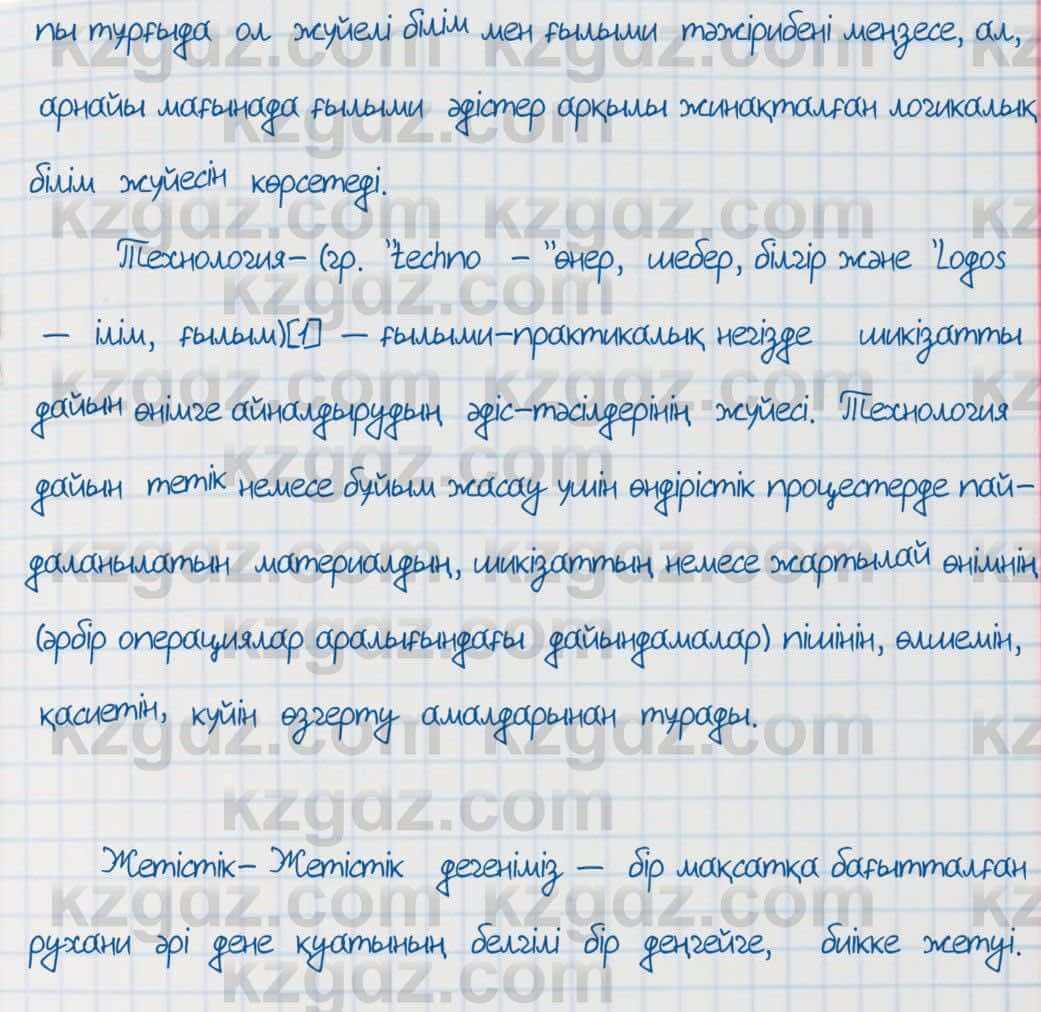 пы тұрғыда ол жүйелі білім мен ғылыми тәжірибені меңзесе, ал,
арнайы мағынада ғылыми әдістер арқылы жинақталған логикалық
білім жүйесін көрсетеді.
Технология– (гр. "techno – "өнер, шебер, білгір және "Logos
– ілім, ғылым)[1] – ғылыми–практикалық негізде шикізатты
дайын өнімге айналдырудың әдіс–тәсілдерінің жүйесі. Технология
дайын тетік немесе бұйым жасау үшін өндірістік процестерде пай–
даланылатын материалдың, шикізаттың немесе жартылай өнімнің
(әрбір операциялар аралығындағы дайындамалар) пішінін, өлшемін,
қасиетін, күйін өзгерту амалдарынан тұрады.
Жетістік– Жетістік дегеніміз – бір мақсатқа бағытталған
рухани әрі дене қуатының белгілі бір деңгейге, биікке жетуі.